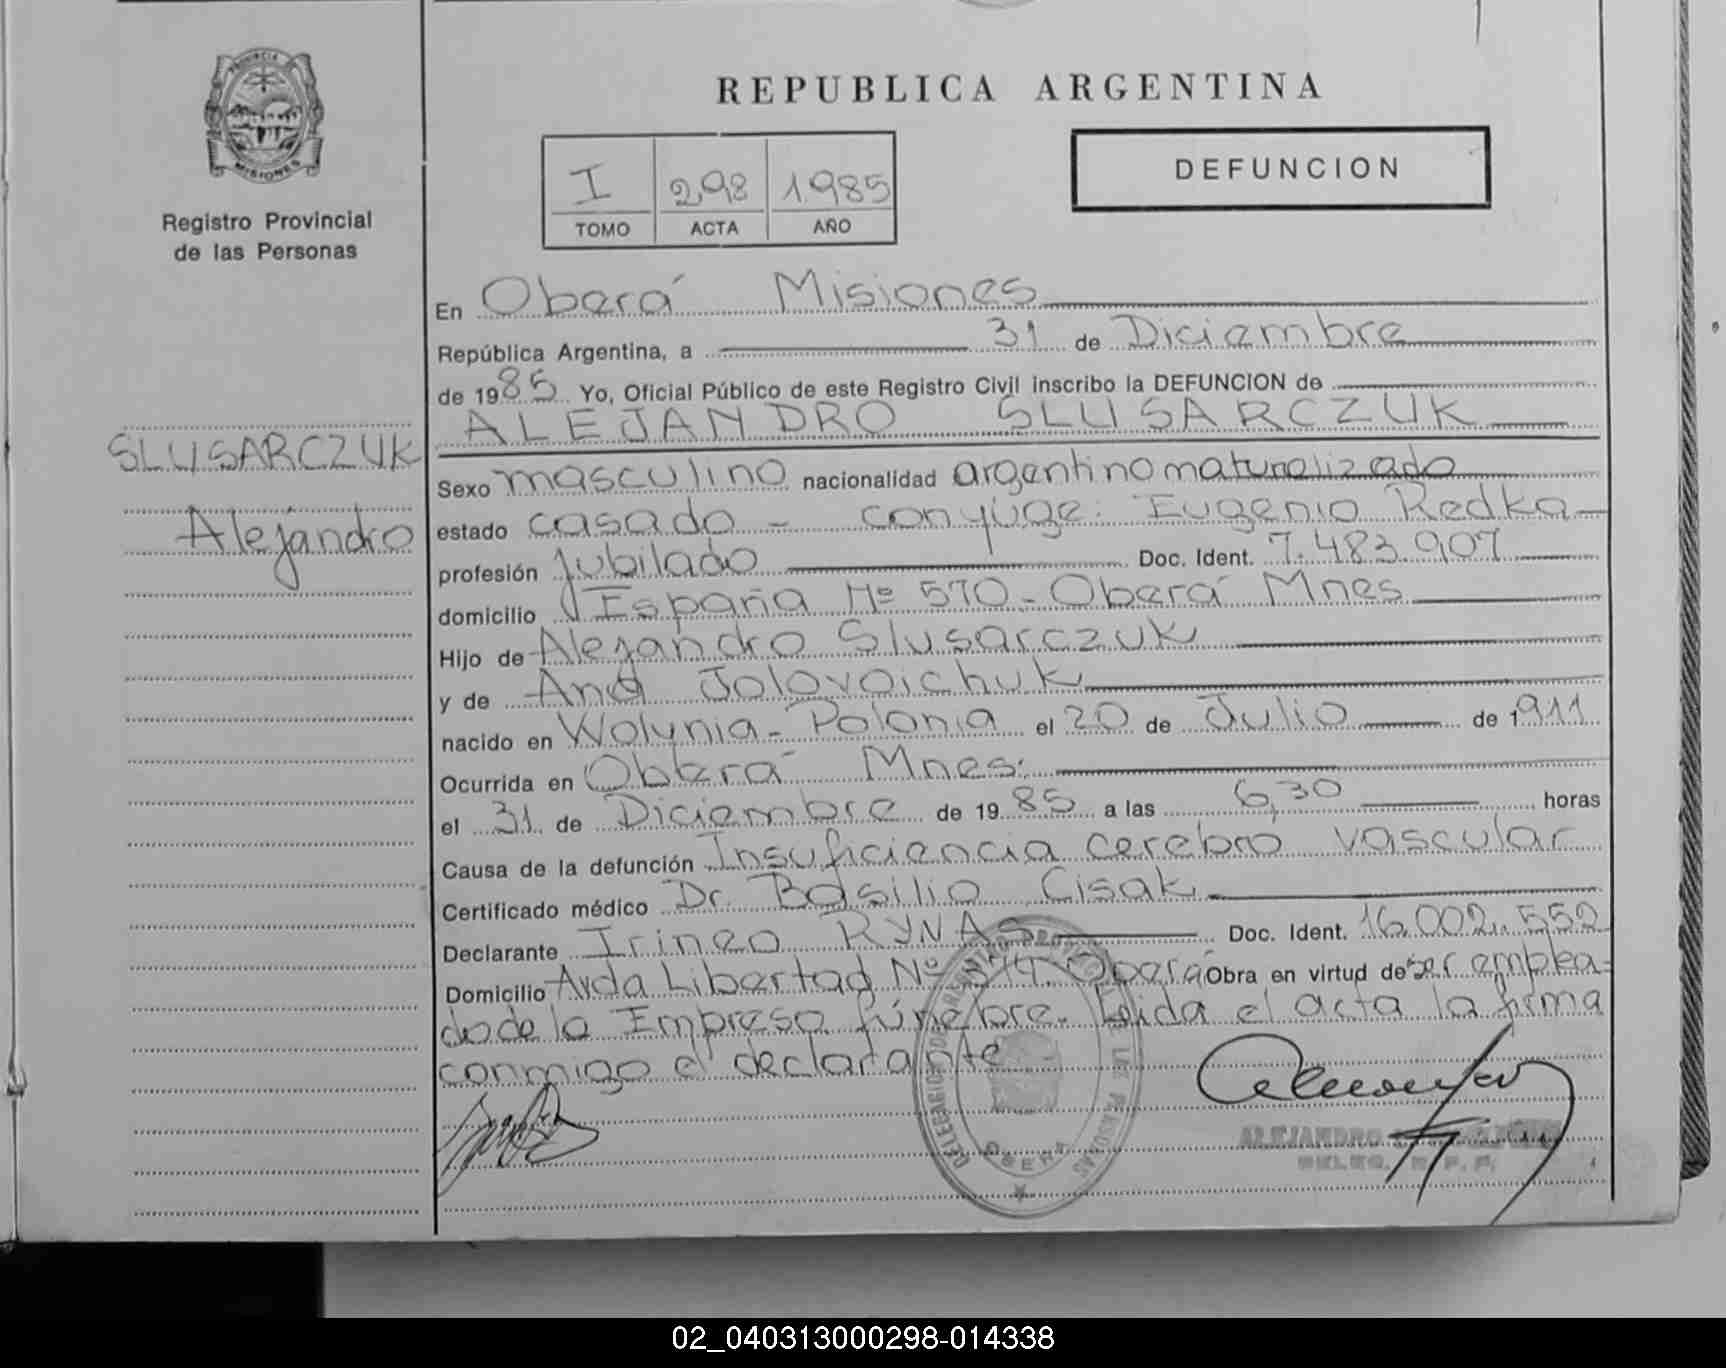 REPUBLICA ARGENTINA
PROVINCIA
MISIONES
Registro Provincial
de las Personas
I 298 1985
TOMO ACTA AÑO
DEFUNCION
En Oberá Misiones
República Argentina, a 31 de Diciembre
de 1985 Yo, Oficial Público de este Registro Civil inscribo la DEFUNCION de
ALEJANDRO SLUSARCZUK
SLUSARCZUK
Alejandro
Sexo masculino nacionalidad argentino naturalizado
estado casado - conyúge: Eugenio Redka
profesión jubilado Doc. Ident. 7.483.907
domicilio España Nº 570 - Oberá Mnes
Hijo de Alejandro Slusarczuk
y de Ana Jolovoichuk
nacido en Wolynia - Polonia el 20 de Julio de 1911
Ocurrida en Oberá Mnes.
el 31 de Diciembre de 1985 a las 6,30 horas
Causa de la defunción Insuficiencia cerebro vascular
Certificado médico Dr. Basilio Cisak
Declarante Irineo RYNAS Doc. Ident. 16.002.552
Domicilio Avda Libertad Nº Oberá Obra en virtud de ser emplea-
do de la Empresa fúnebre. Leida el acta la firma
conmigo el declarante
DELEGACION DE LAS PERSONAS
OBERA
ALEJANDRO
DELEG. R. P. P.
02_040313000298-014338